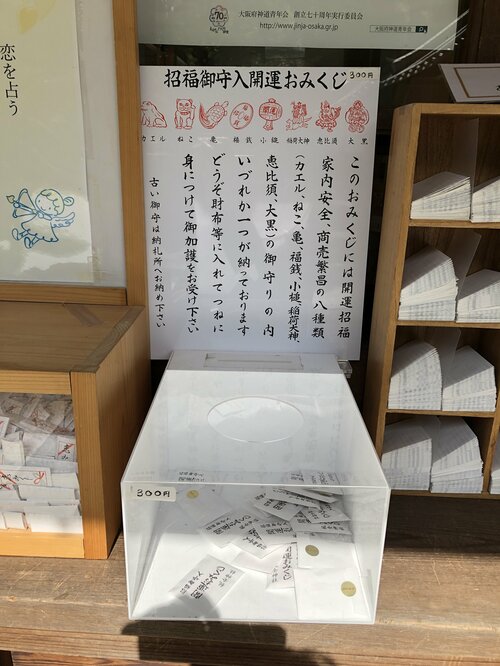 大阪府神道青年会 創立七十周年実行委員会
http://www.jinja-osaka.gr.jp
大阪府神道青年会
恋を占う
招福御守入開運おみくじ 300円
カエル ねこ 亀 福銭 小槌 稲荷大神 恵比須 大黒
このおみくじには開運招福
家内安全、商売繁昌の八種類
(カエル、ねこ、亀、福銭、小槌、稲荷大神、
恵比須、大黒)の御守りの内
いづれか一つが納っております
どうぞ財布等に入れてつねに
身につけて御加護をお受け下さい
古い御守は納札所へお納め下さい
300円